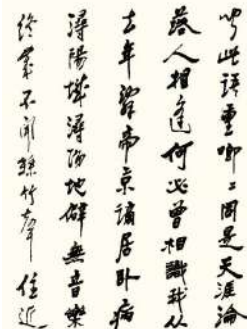 聞此語重唧〻同是天涯淪
落人相逢何必曾相識我从
去年辭帝京謫居卧病
潯陽城潯陽地僻無音樂
終歲不聞絲竹聲住近